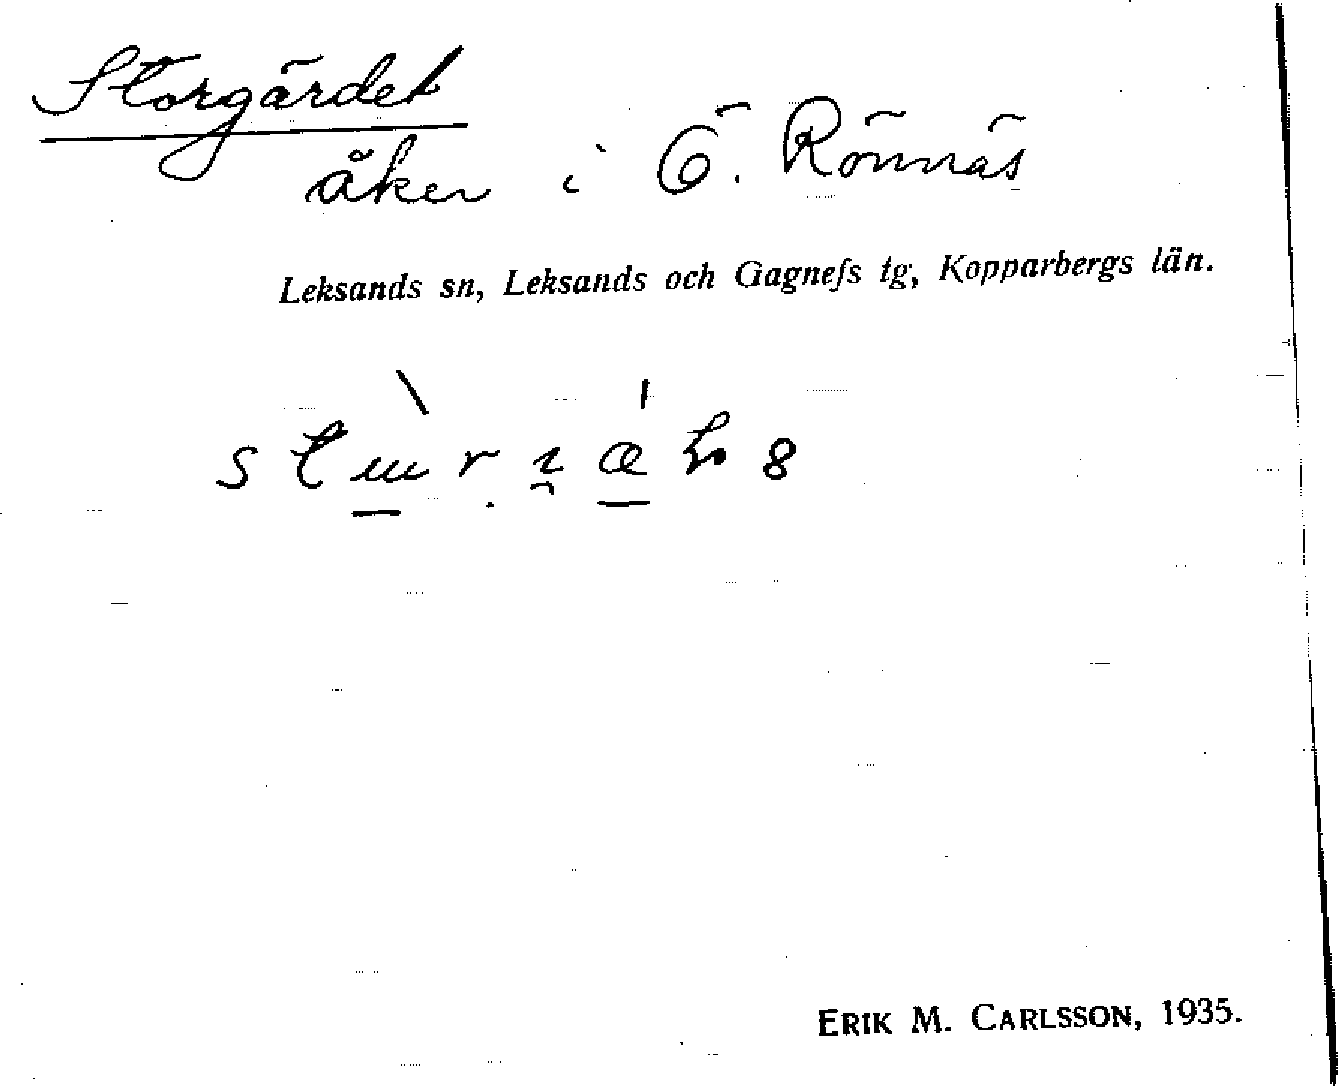 Storgärdet
åker i Ö. Rönnäs
Leksands sn, Leksands och Gagnefs tg, Kopparbergs län.
ERIK M. CARLSSON, 1935.